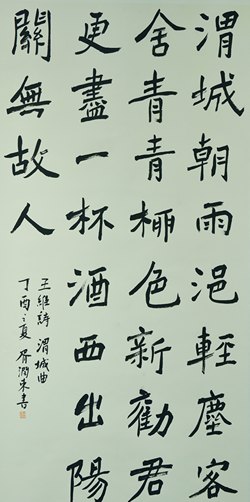 渭城朝雨浥輕塵客
舍青青栁色新勸君
更盡一杯酒西出陽
關無故人
王維詩渭城曲
丁酉之夏胥潤東書